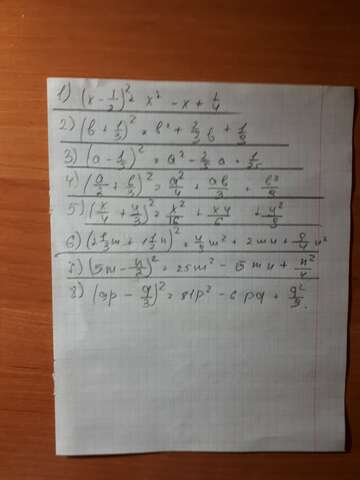 1) (x - 1/2)² = x² - x + 1/4
2) (b + 1/3)² = b² + 2/3 b + 1/9
3) (a - 1/3)² = a² - 2/3 a + 1/25
4) (a/2 + b/3)² = a²/4 + ab/3 + b²/9
5) (x/4 + y/3)² = x²/16 + xy/6 + y²/9
6) m + 1 n)² = m² + 2mn + 9/4 n²
7) (5m - n/2)² = 25m² - 5mn + n²/4
8) (9p - q/3)² = 81p² - 6pq + q²/9.